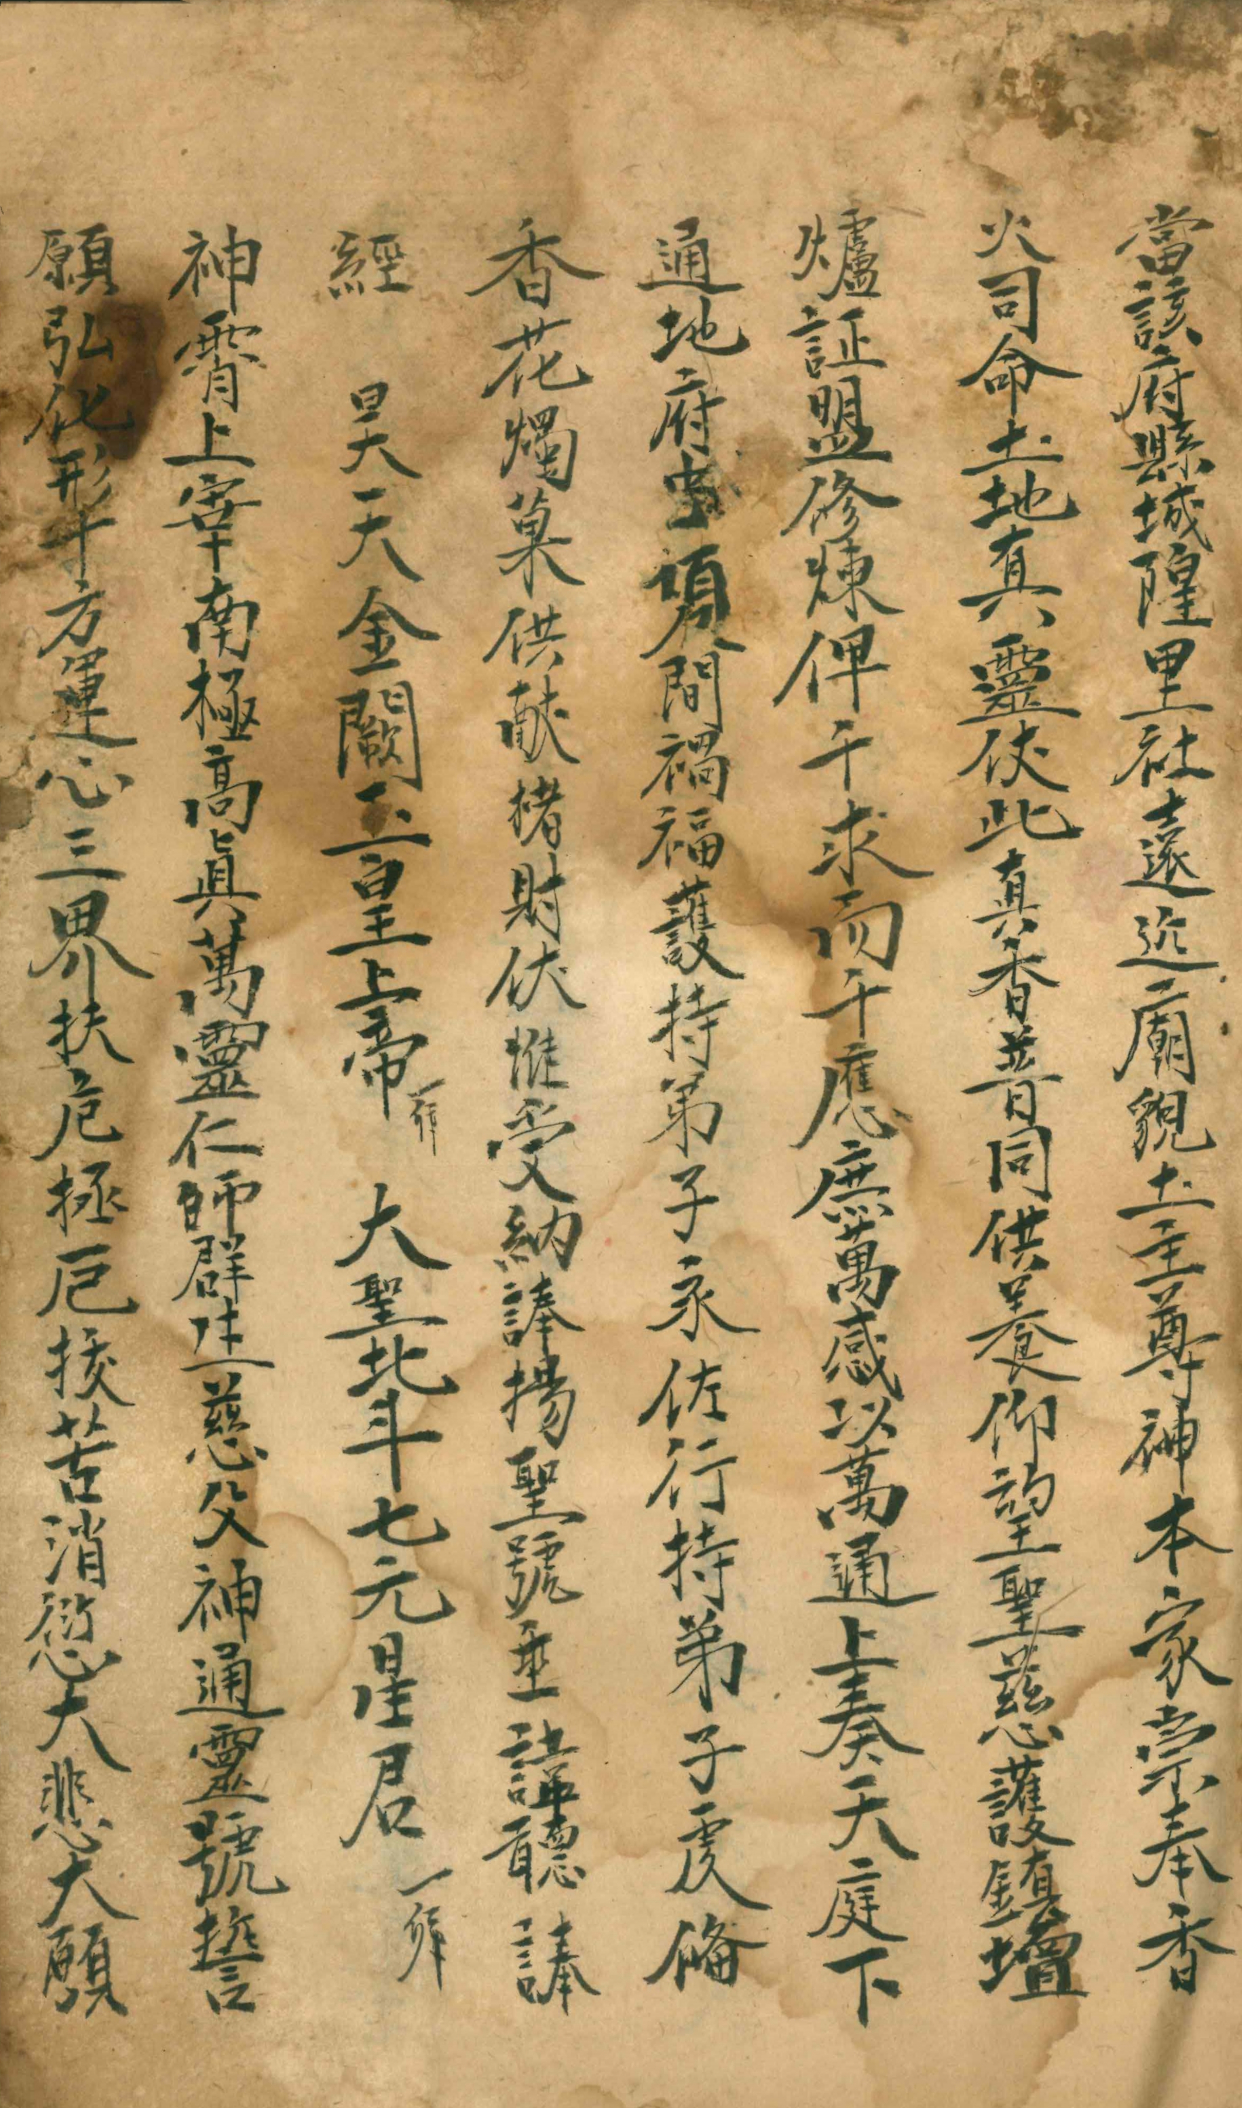 當該府縣城隍里社遠近廟貌土主尊神本家崇奉香
火司命土地真靈伏此真香普同供養仰望聖慈護鎮壇
爐証盟修煉俾千求而千應庶萬感以萬通上奏天庭下
通地府間禍福護持弟子永佐行持弟子虔備
香花燭菓供献楮財伏惟受納諱揚聖號垂諱聽諱
經 昊天金闕玉皇上帝一拜 大聖北斗七元星君一拜
神霄上宰南極高眞萬靈仁師群生慈父神通靈號誓
願弘化形十方運心三界扶危拯厄拔苦消愆大悲大願